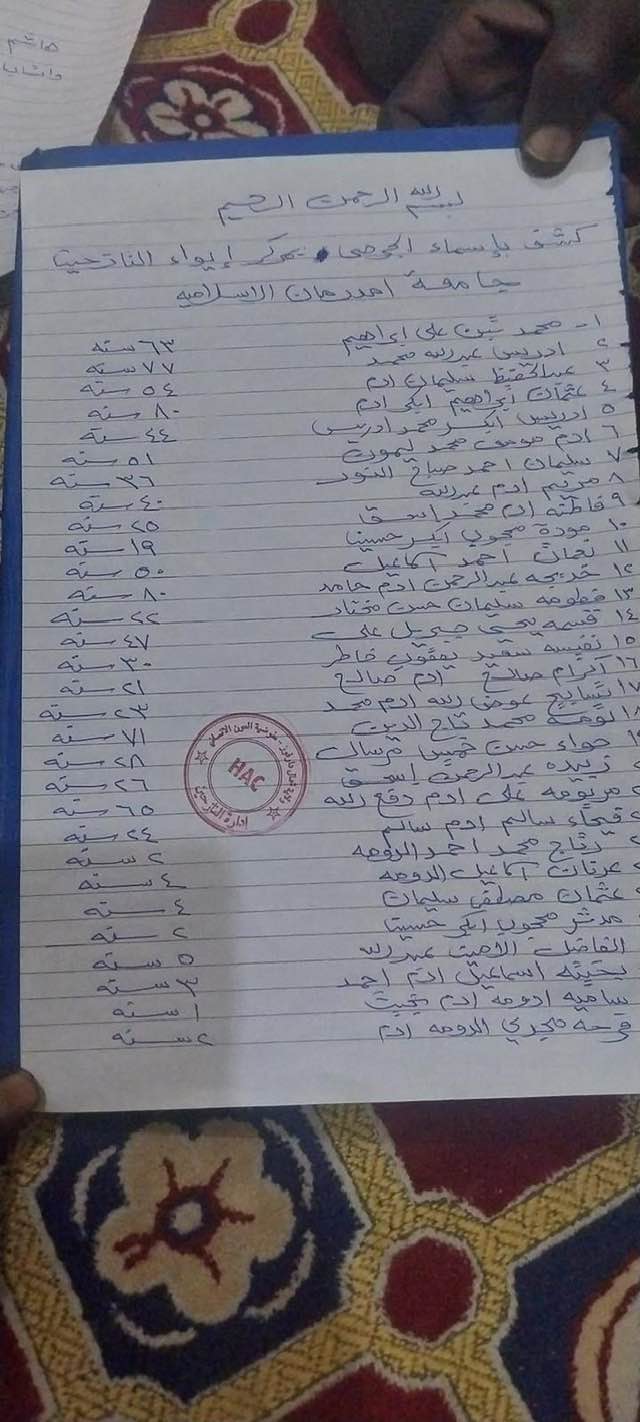 هاشم
بسم الله الرحمن الرحيم
كشف بإسماء الجرحى بمركز إيواء النازحين
جامعة امدرمان الاسلامية
١- محمد شين على إبراهيم ٦٣ سنه
٢ ادريس عبدالله محمد ٧٧ سنه
٣ عبدالحفيظ سليمان ادم ٥٤ سنه
٤ عثمان إبراهيم ابكر ادم ٨٠ سنه
٥ ادريس ابكر محمد ادريس ٤٤ سنه
٦ ادم موسى محمد ٥١ سنه
٧ سليمان احمد صباح النور ٣٦ سنه
٨ مريم ادم عبدالله ٤٠ سنة
٩ فاطمه ادم محمد اسحق ٢٥ سنه
١٠ مودة محجوب ابكر حسين ١٩ سنه
١١ احمد اسماعيل ٥٠ سنه
١٢ خديجه عبدالرحمن ادم حامد ٨٠ سنه
١٣ فطومه سليمان حسن مختار ٢٢ سنه
١٤ قسمه يحي جبريل على ٤٧ سنه
١٥ نفيسه سعيد يعقوب خاطر ٣٠ سنه
١٦ اكرام صالح ادم صالح ٢١ سنه
١٧ تسابيح عوض الله ادم محمد ٢٣ سنه
١٨ محمد تاج الدين ٧١ سنه
حواء حسن خميس مرسال ٢٨ سنه
زبيده عبدالرحمن إسحق ٢٦ سنه
مريومه على ادم دفع الله ٦٥ سنه
سالم ادم سالم ٢٤ سنه
رتاج محمد احمد الدومه ٢ سنه
اسماعيل الدومه ٤ سنه
عثمان مصطفى سليمان ٤ سنه
مدثر محجوب ابكر حسين ٢ سنه
الفاضل الامين عبدالله ٥ سنه
بخيته اسماعيل ادم احمد ٣ سنه
ساميه ادومه ادم بخيت ١ سنه
فرحه مجدي الدومه ادم ٢ سنه
مفوضية العون الانساني
HAC
إدارة النازحين